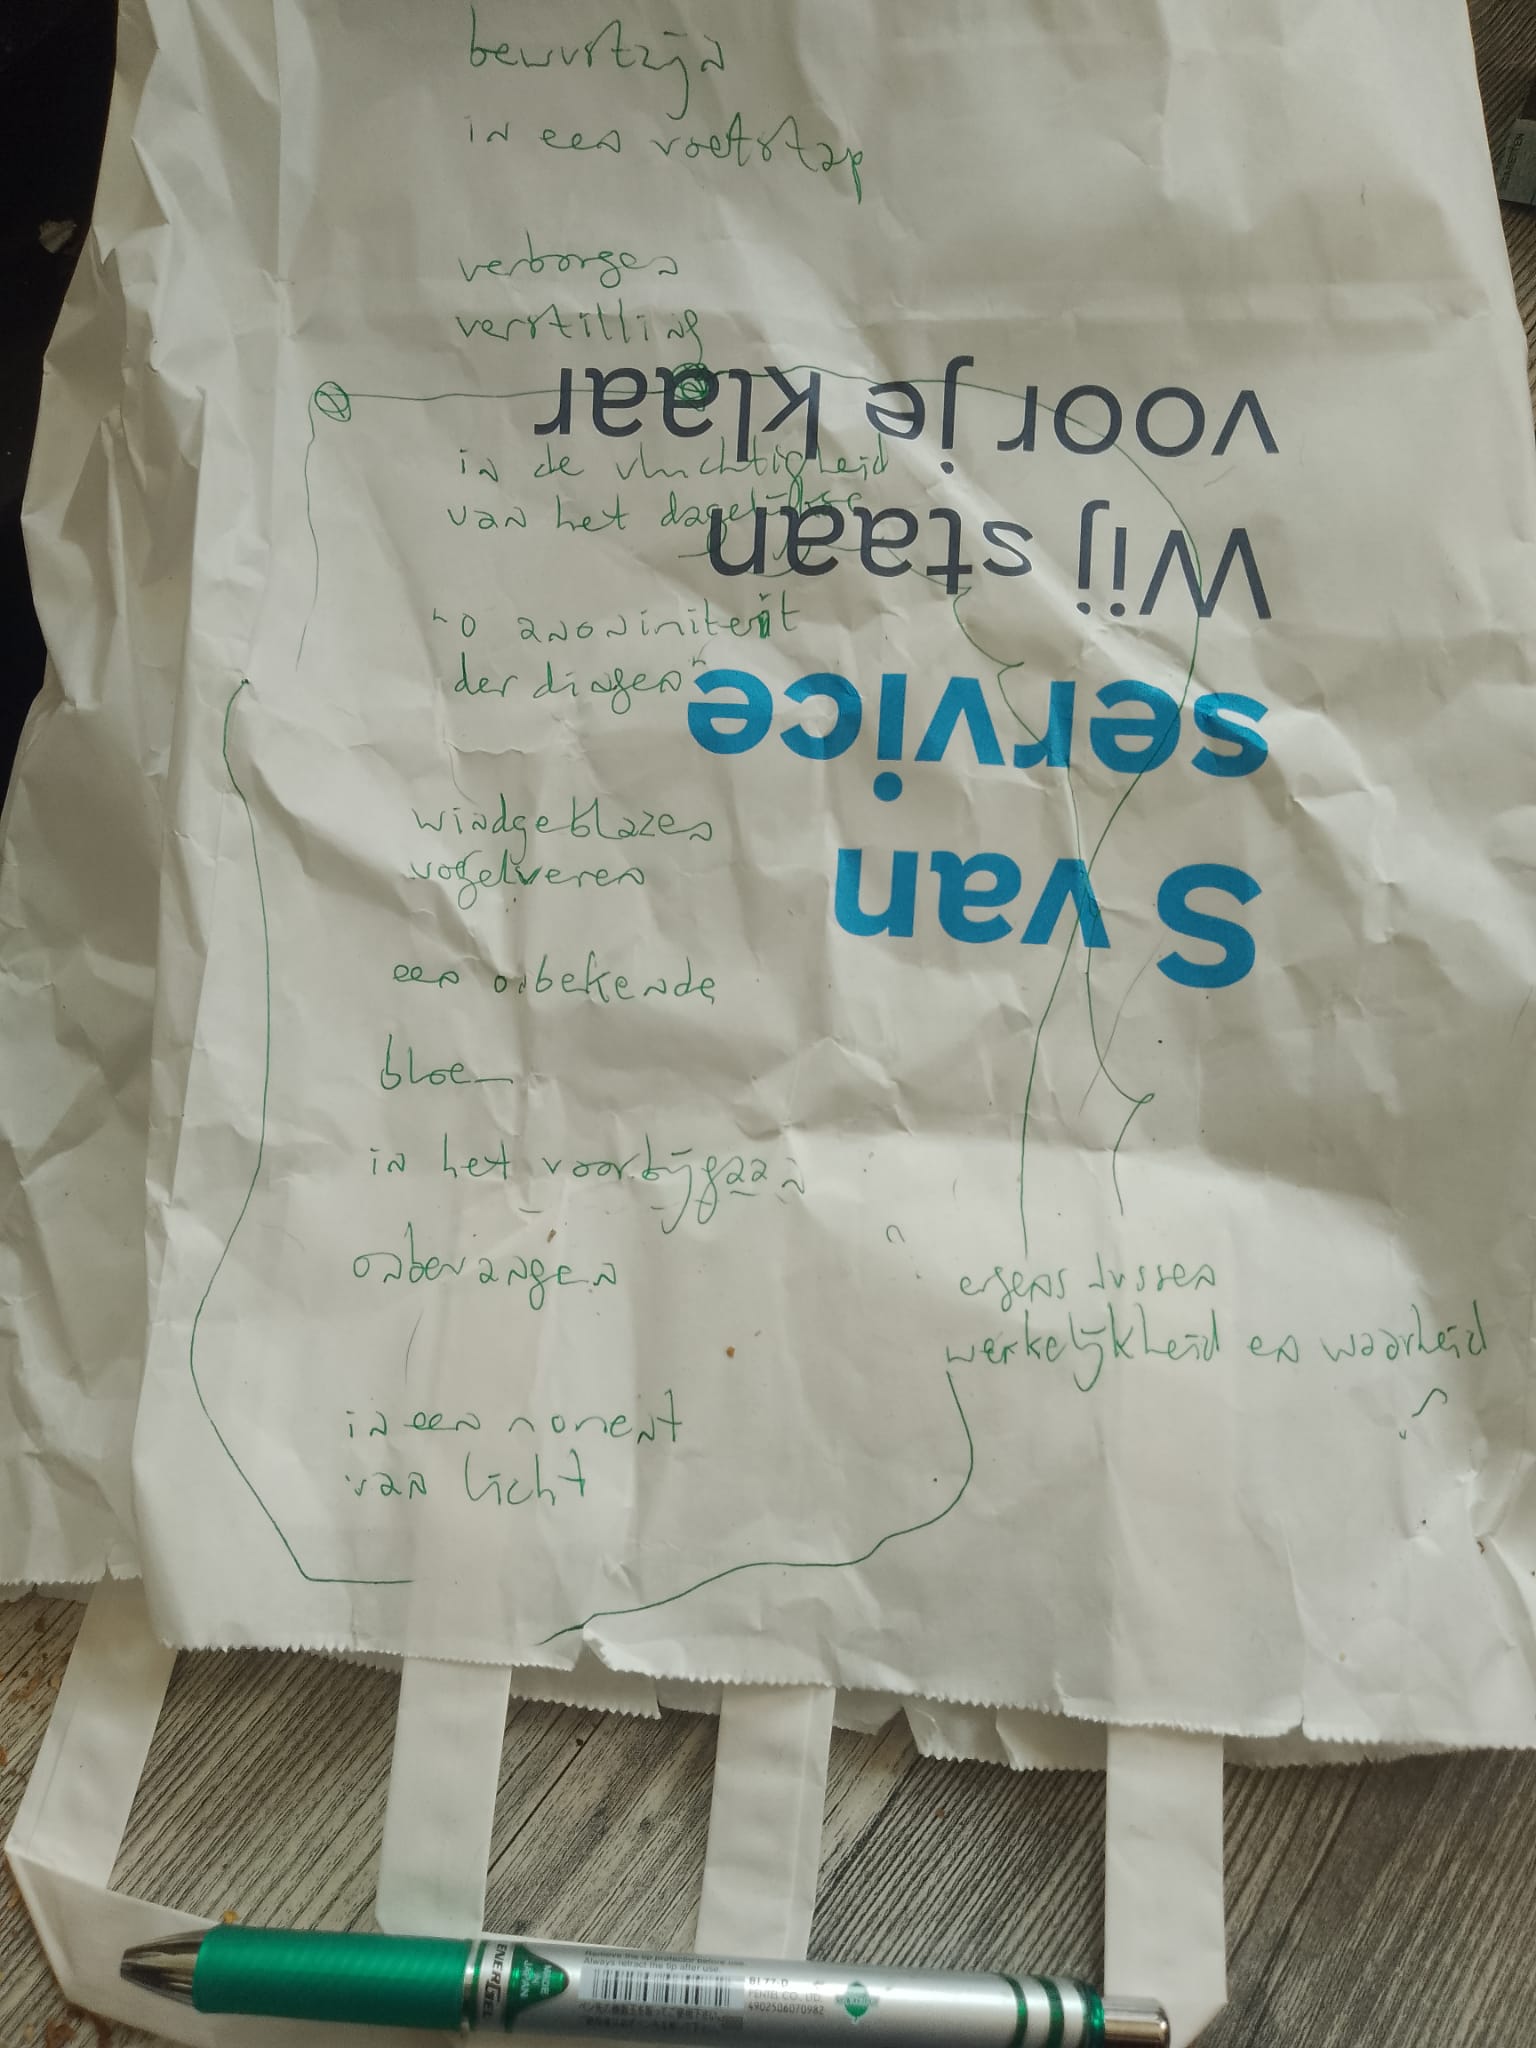 bewustzijn
in een voetstap
verborgen
verstilling
in de vluchtigheid
van het dagelijkse
anonimiteit
der dingen"
windgeblazen
vogelveren
een onbekende
bloem
in het voorbijgaan
onbevangen
in een moment
van licht
ergens tussen
werkelijkheid en waarheid
S van
service
Wij staan
voor je klaar
ENERGEL
MADE IN JAPAN
Remove the tip protector before use.
Always retract the tip after use.
BL77-D
PENTEL CO., LTD.
4902506070982